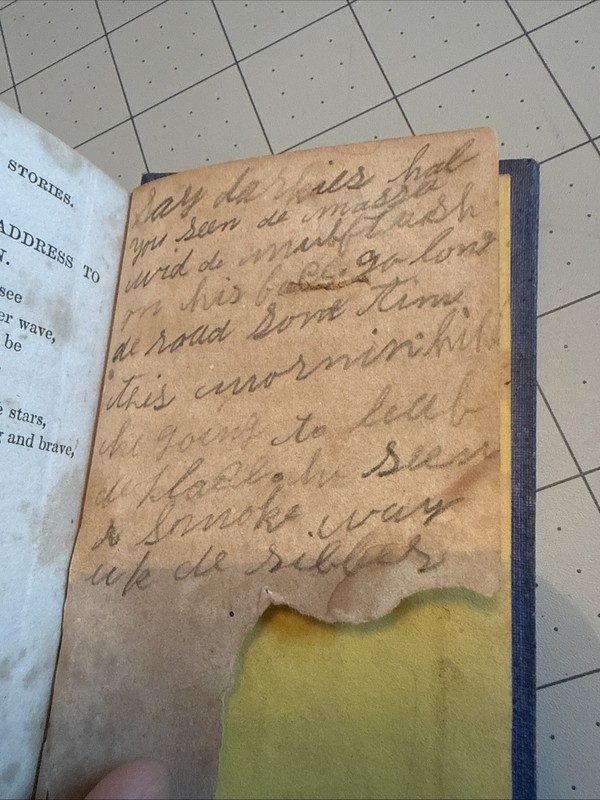 STORIES.
ADDRESS TO
N.
see
er wave,
be
e stars,
g and brave,
Say darkies hab
you seen de massa
wid de
on his face go long
de road some time
this mornin
he going to leab
de place he seen
a smoke way
up de ribber